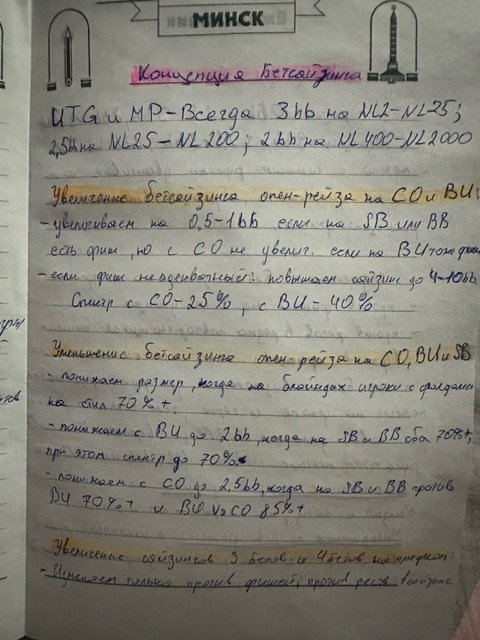 МИНСК
Концепция Бетсайзинга
UTG и MP - Всегда 3bb на NL2-NL25;
2,5bb на NL25 - NL200; 2bb на NL400-NL2000
Увеличение бетсайзинга опен-рейза на CO и BU:
- увеличиваем на 0,5-1bb если на SB или BB
есть фиш, но с CO не увелич. если на BU тоже фиш
- если фиш неадекватный: повышаем сайзинг до 4-10bb
Спектр с CO-25%, с BU-40%
Уменьшение бетсайзинга опен-рейза на CO, BU и SB
- понижаем размер, когда на блайндах игроки с фолдами
на стил 70%+,
- понижаем с BU до 2bb, когда на SB и BB оба 70%+,
при этом спектр до 70%.
- понижаем с CO до 2.5bb, когда на SB и BB против
BU 70%+ и BU vs CO 85%+
Увеличение сайзингов 3 бетов и 4 бетов на префлоп:
- Изменяем только против фишей, против регов сайзинг